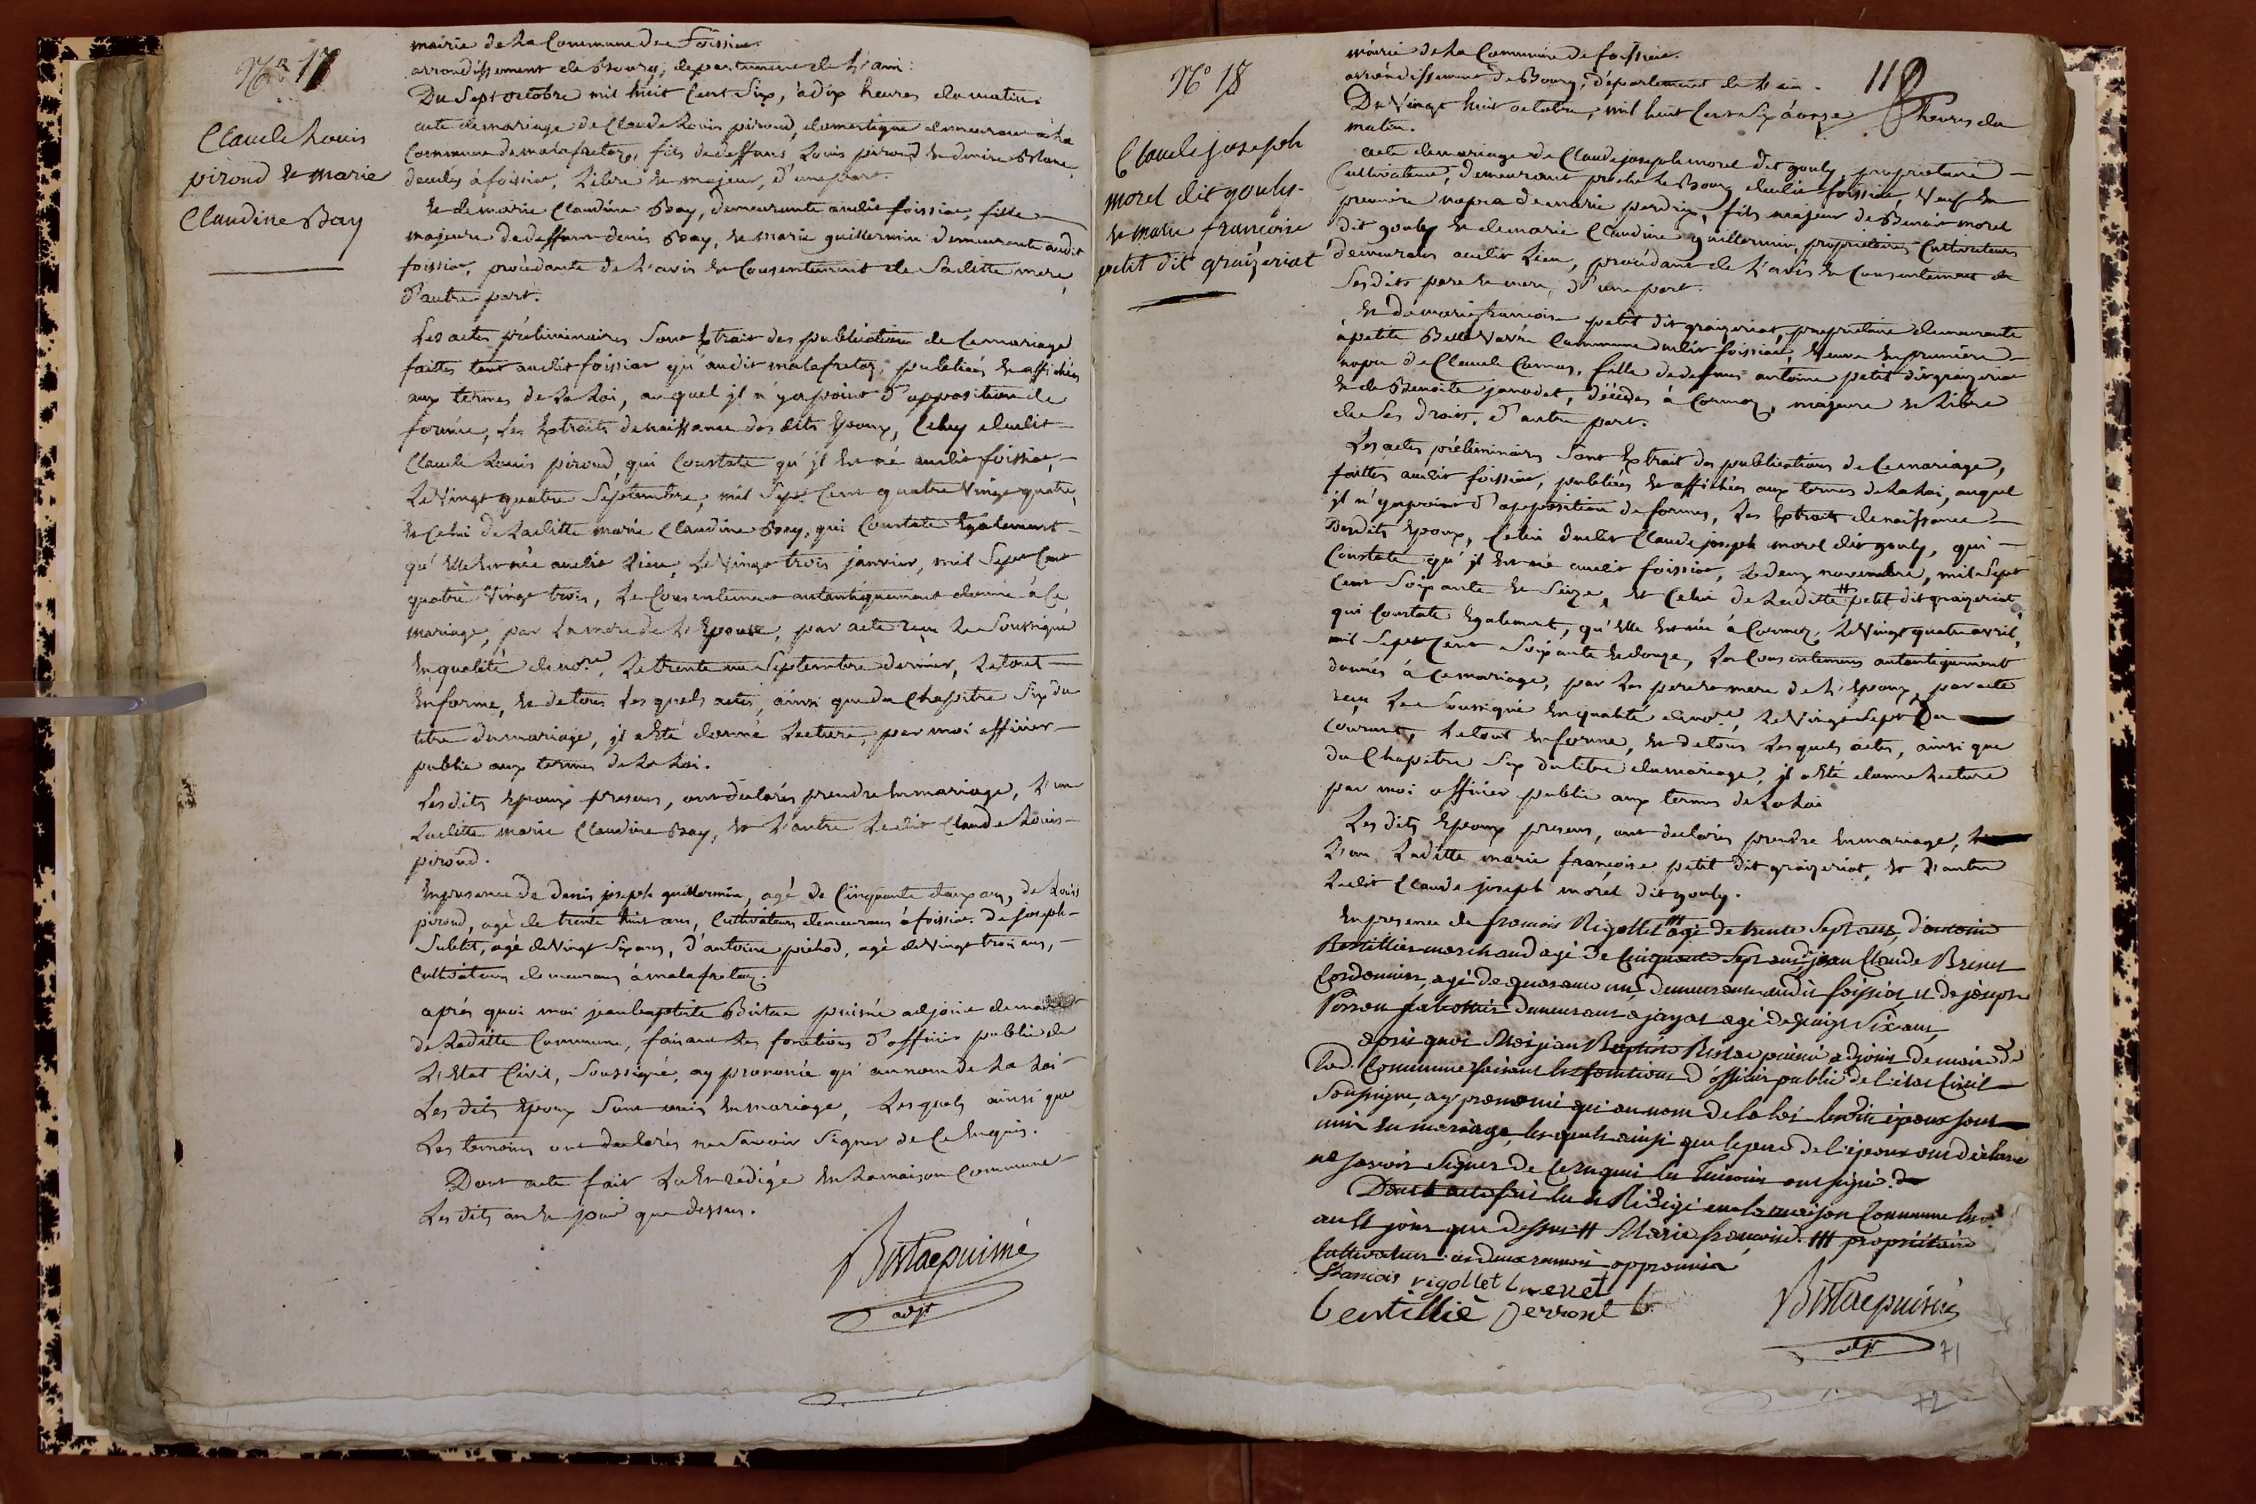 N° 17
Claude Louis
piroud et marie
Claudine Bay
mairie de La Commune de Foissiat.
arrondissement de Bourg, departement de L'ain.
Du Sept octobre mil huit Cent Six, à dix heures du matin.
acte de mariage de Claude Louis piroud, domestique demeurant à La
Commune de malafretaz, fils de deffunts Louis piroud et denise
décedés à foissiat, Libre et majeur, d'une part.
et de marie Claudine Bay, demeurante audit foissiat, fille
majeure de deffunt denis Bay, et marie guillermin demeurante audit
foissiat, procédante de L'avis et Consentement de Saditte mere,
d'autre part.
Les actes préliminaires Sont Extrait des publications de Ce mariage
faittes tant audit foissiat qu'audit malafretaz, publiées et affichées
aux termes de La Loi, auquel jl n'y a point d'opposition de
formée, Les Extraits de naissance des dits Epoux, Celuy dudit
Claude Louis piroud, qui Constate qu'jl Est né audit foissiat,
Le Vingt quatre Septembre, mil Sept Cent quatre Vingt quatre,
et Celui de Laditte marie Claudine Bay, qui Constate Egalement
qu'Elle Est née audit Lieu, Le Vingt trois janvier, mil Sept Cent
quatre Vingt trois, Le Consentement autentiquement donné à Ce
mariage, par La mere de L'Epouse, par acte reçu Le Soussigné
En qualité de no.re, Le trente un Septembre dernier, Le tout
En forme, et de tous Les quels actes, ainsi que du Chapitre Six du
titre du mariage, jl a Eté donné Lecture, par moi officier
public aux termes de La Loi.
Lesdits Epoux presens, ont déclarés prendre En mariage, L'un
Laditte marie Claudine Bay, et L'autre Ledit Claude Louis
piroud.
En presence de denis joseph guillermin, agé de Cinquante deux ans, de Louis
piroud, agé de trente huit ans, Cultivateurs demeurans à foissiat. de joseph
Sublet, agé de Vingt Six ans, d'antoine pichod, agé de Vingt trois ans,
Cultivateurs demeurans à malafretaz.
aprés quoi moi jean baptiste Bistac puisné adjoint de maire
de Laditte Commune, faisant Les fonctions d'officier public de
L'Etat Civil, Soussigné, ay prononcé qu'au nom de La Loi
Les dits Epoux Sont unis En mariage, Lesquels ainsi que
Les temoins ont declarés ne Savoir Signer de Ce Enquis.
Dont acte fait Lu Et rédigé En La maison Commune
Les dits an et jour que dessus.
Bistac puisné
adjt
N° 18
Claude joseph
morel dit gouly
et marie françoise
petit dit graizeriat
119
mairie de La Commune de foissiat.
arrondissement de Bourg, département de L'ain.
Du Vingt huit octobre, mil huit Cent Six à onze heures du
matin.
acte de mariage de Claude joseph morel dit gouly, proprietaire
Cultivateur, demeurant proche Le Bourg dudit foissiat, Veuf en
premiere nopce de marie perdrix, fils majeur de Benoit morel
dit gouly et de marie Claudine guillermin, proprietaires Cultivateurs
demeurans audit Lieu, procédant de L'avis et Consentement de
Sesdits pere et mere, d'une part.
et de marie francoise petit dit graizeriat, proprietaire demeurante
à petite Belle Vavre Commune dudit foissiat, Veuve En premiere
nopce de Claude Camus, fille de defunts antoine petit dit graizeriat
et de Benoite janodet, décedés à Cormoz, majeure et Libre
de Ses droits, d'autre part.
Les actes préliminaires Sont Extrait des publications de Ce mariage,
faittes audit foissiat, publiées et affichées aux termes de La Loi, auquel
jl n'y a point d'opposition de formée, Les Extraits de naissance
Desdits Epoux, Celui dudit Claude joseph morel dit gouly, qui
Constate qu'jl Est né audit foissiat, Le deux novembre, mil Sept
Cent Soixante et Seize, et Celui de Laditte # petit dit graizeriat,
qui Constate Egalement, qu'Elle Est née à Cormoz, Le Vingt quatre avril,
mil Sept Cent Soixante et douze, Les Consentemens autentiquement
donnés à Ce mariage, par Les pere et mere de L'Epoux, par acte
reçu Le Soussigné En qualité de no.re, Le Vingt Sept Du
Courant, Le tout En forme, et de tous Lesquels actes, ainsi que
du Chapitre Six du titre du mariage, jl a Eté donné Lecture
par moi officier public aux termes de La Loi
Les dits Epoux presens, ont declarés prendre En mariage,
L'un Laditte marie françoise petit dit graizeriat, et L'autre
Ledit Claude joseph morel dit gouly.
En presence de francois Rigollet ### agé de trente Sept ans, d'antoine
Bentillier marchand agé de Cinquante Sept ans, de jean Claude Brenet
Cordonnier, agé de quarante un, demeurans audit foissiat et de joseph
Perron Sabottier demeurant a jayat agé de Vingt Six ans,
après quoi Moi jean Baptiste Bistac puisné adjoint de maire de
Lad. Commune faisant les fonctions d'officier public de l'état Civil
Soussigné, ay prononcé qu'au nom de la loi lesdits époux sont
unis En mariage, lesquels ainsi que le pere de l'époux ont déclaré
ne Savoir Signer de Ce Enquis les Témoins ont signé.
Dont acte fait lu et Rédigé en la maison Commune les d.
an et jour que dessus # Marie francoise. ### propriétaire
Cultivateur. les deux renvois approuvés
francois rigollet brenet
bentillié perront
Bistac puisné
adjt
71
72